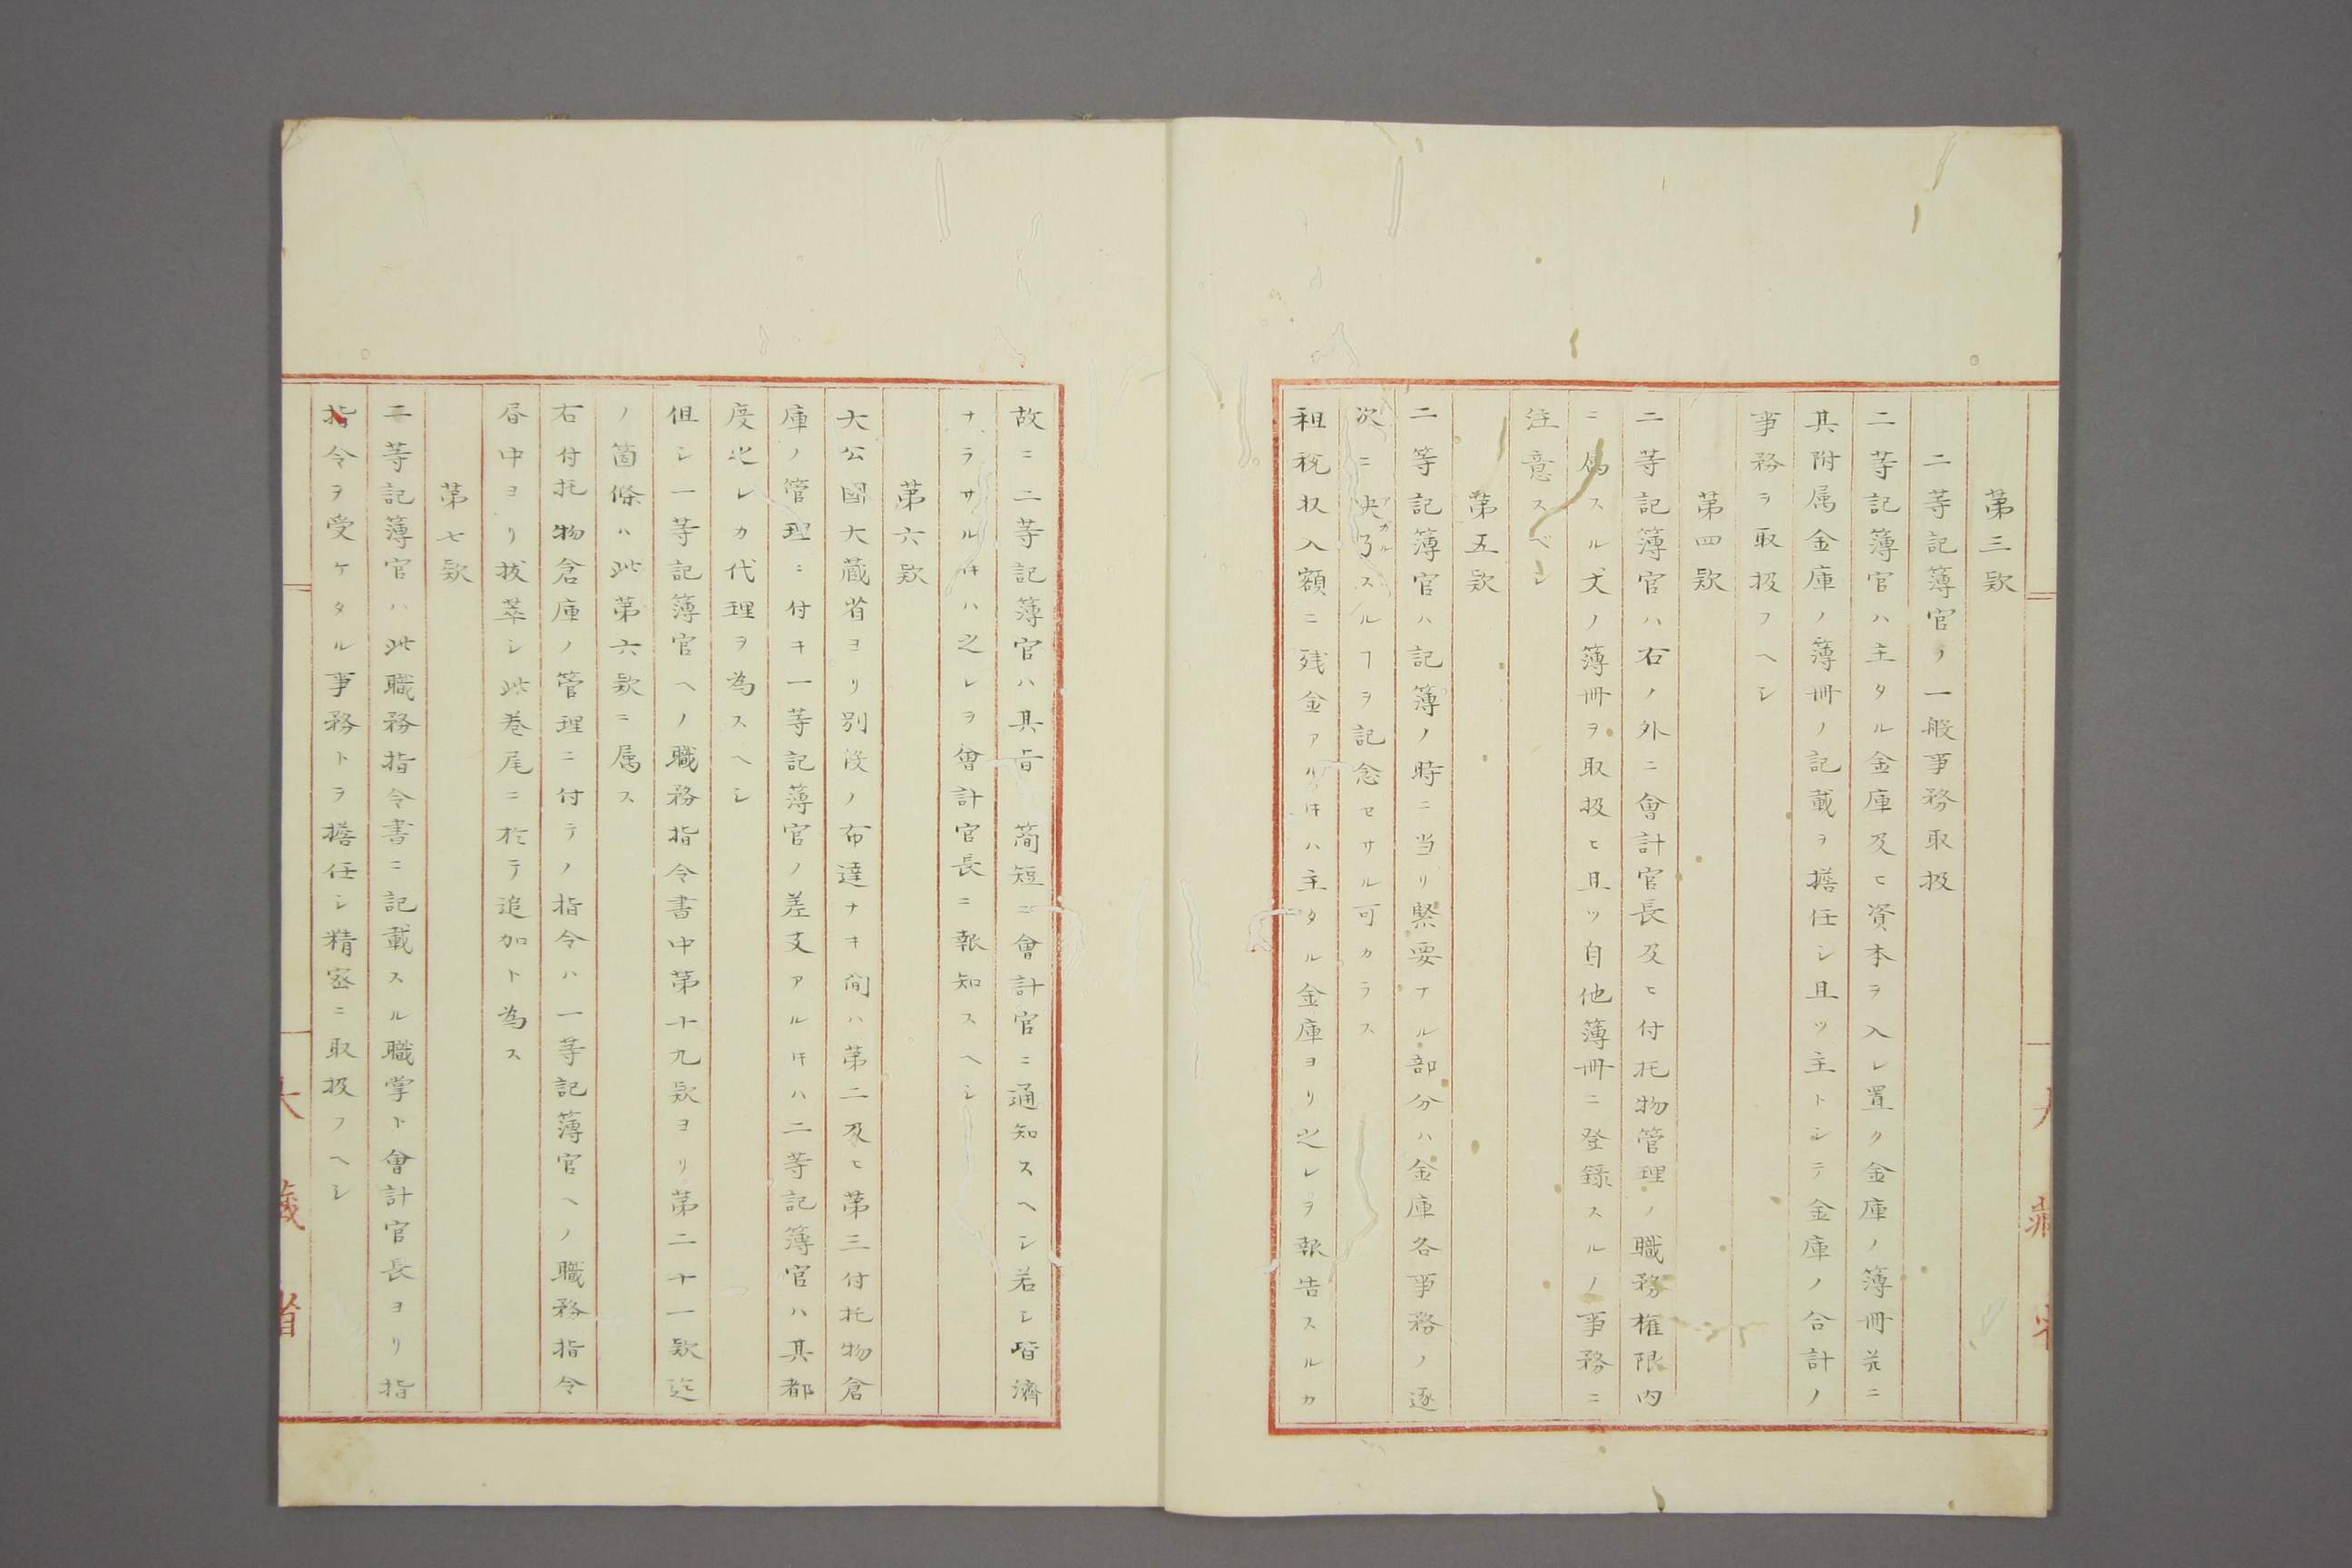 第三欵
二等記簿官ノ一般事務取扱
二等記簿官ハ主タル金庫及ヒ資本ヲ入レ置ク金庫ノ簿冊並ニ
其附属金庫ノ簿冊ノ記載ヲ擔任シ且ツ主トシテ金庫ノ合計ノ
事務ヲ取扱フヘシ
第四欵
二等記簿官ハ右ノ外ニ會計官長及ヒ付托物管理ノ職務権限内
ニ属スル丈ノ簿冊ヲ取扱ヒ且ツ自他簿冊ニ登録スルノ事務ニ
注意スベシ
第五欵
二等記簿官ハ記簿ノ時ニ当リ緊要ナル部分ハ金庫各事務ノ逐
次ニ決了スルヿヲ記念セサル可カラス
租税収入額ニ残金アル𪜈ハ主タル金庫ヨリ之レヲ報告スルカ
故ニ二等記簿官ハ其旨簡短ニ會計官ニ通知スヘシ若シ皆濟
ナラサル𪜈ハ之レヲ會計官長ニ報知スヘシ
第六欵
大公國大蔵省ヨリ別段ノ布達ナキ間ハ第二及ヒ第三付托物倉
庫ノ管理ニ付キ一等記簿官ノ差支アル𪜈ハ二等記簿官ハ其都
度之レカ代理ヲ為スヘシ
但シ一等記簿官ヘノ職務指令書中第十九欵ヨリ第二十一欵迄
ノ箇條ハ此第六欵ニ属ス
右付托物倉庫ノ管理ニ付テノ指令ハ一等記簿官ヘノ職務指令
書中ヨリ抜萃シ此巻尾ニ於テ追加ト為ス
第七欵
二等記簿官ハ此職務指令書ニ記載スル職掌ト會計官長ヨリ指
指令ヲ受ケタル事務トヲ擔任シ精密ニ取扱フヘシ
大蔵省